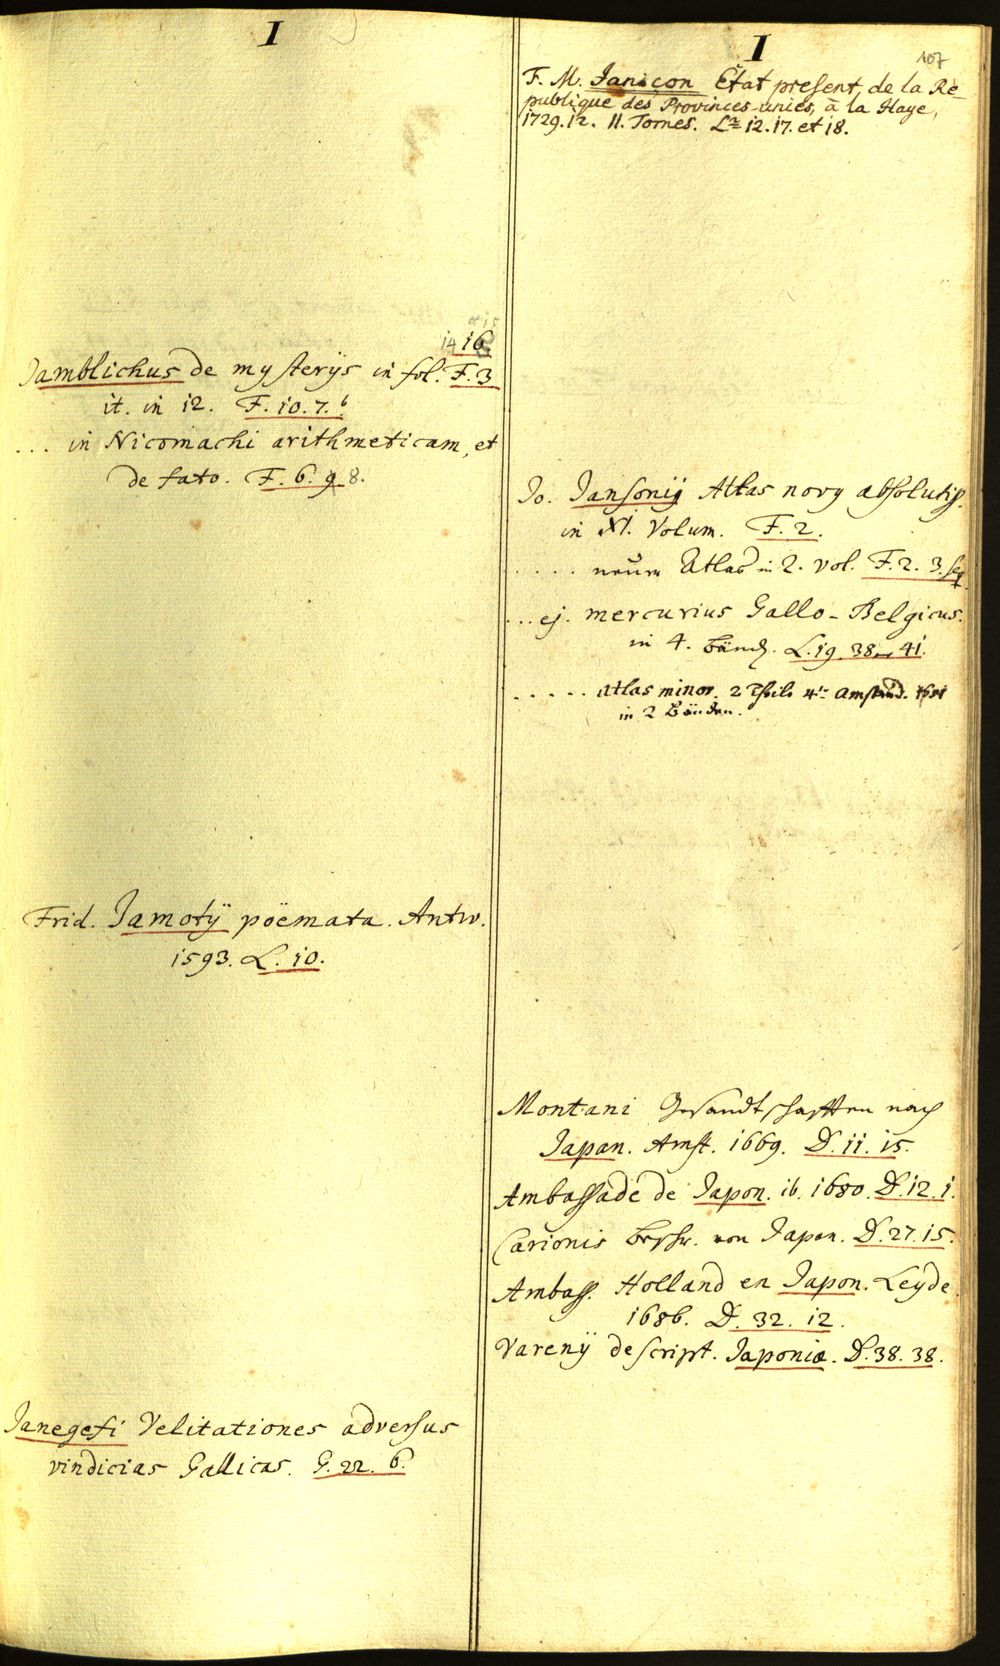 I
14 16
Jamblichus de mysterijs in fol. F. 3
it. in 12. F. 10. 7. b.
... in Nicomachi arithmeticam, et
de fato. F. 6. 9 8.
Frid. Jamotij poëmata. Antw.
1593. L. 10.
Janegesi Velitationes adversus
vindicias Gallicas. G. 22. 6.
I
107
F. M. Janiçon Êtat present de la Rè-
publique des Provinces-unies, à la Haye,
1729. 12. II. Tomes. 12. 17. et 18.
Jo. Jansonij Atlas novy absolutiss.
in XI. Volum. F. 2.
..... neuer Atlas in 2. vol. F. 2. 3. seq
... ej. mercurius Gallo-Belgicus.
in 4. Bänd. L. 19. 38 41.
..... Atlas minor. 2 Theile 4to Amsterd. 1651
in 2 Bänden.
Montani Gesandtschafften nach
Japan. Amst. 1669. D. 11. 15.
Ambassade de Japon. ib. 1680. D. 12. 1.
Carionis Beschr. von Japan. D. 27. 15.
Ambass. Holland en Japon. Leyde.
1686. D. 32. 12.
Varenij descript. Japoniæ. D. 38. 38.